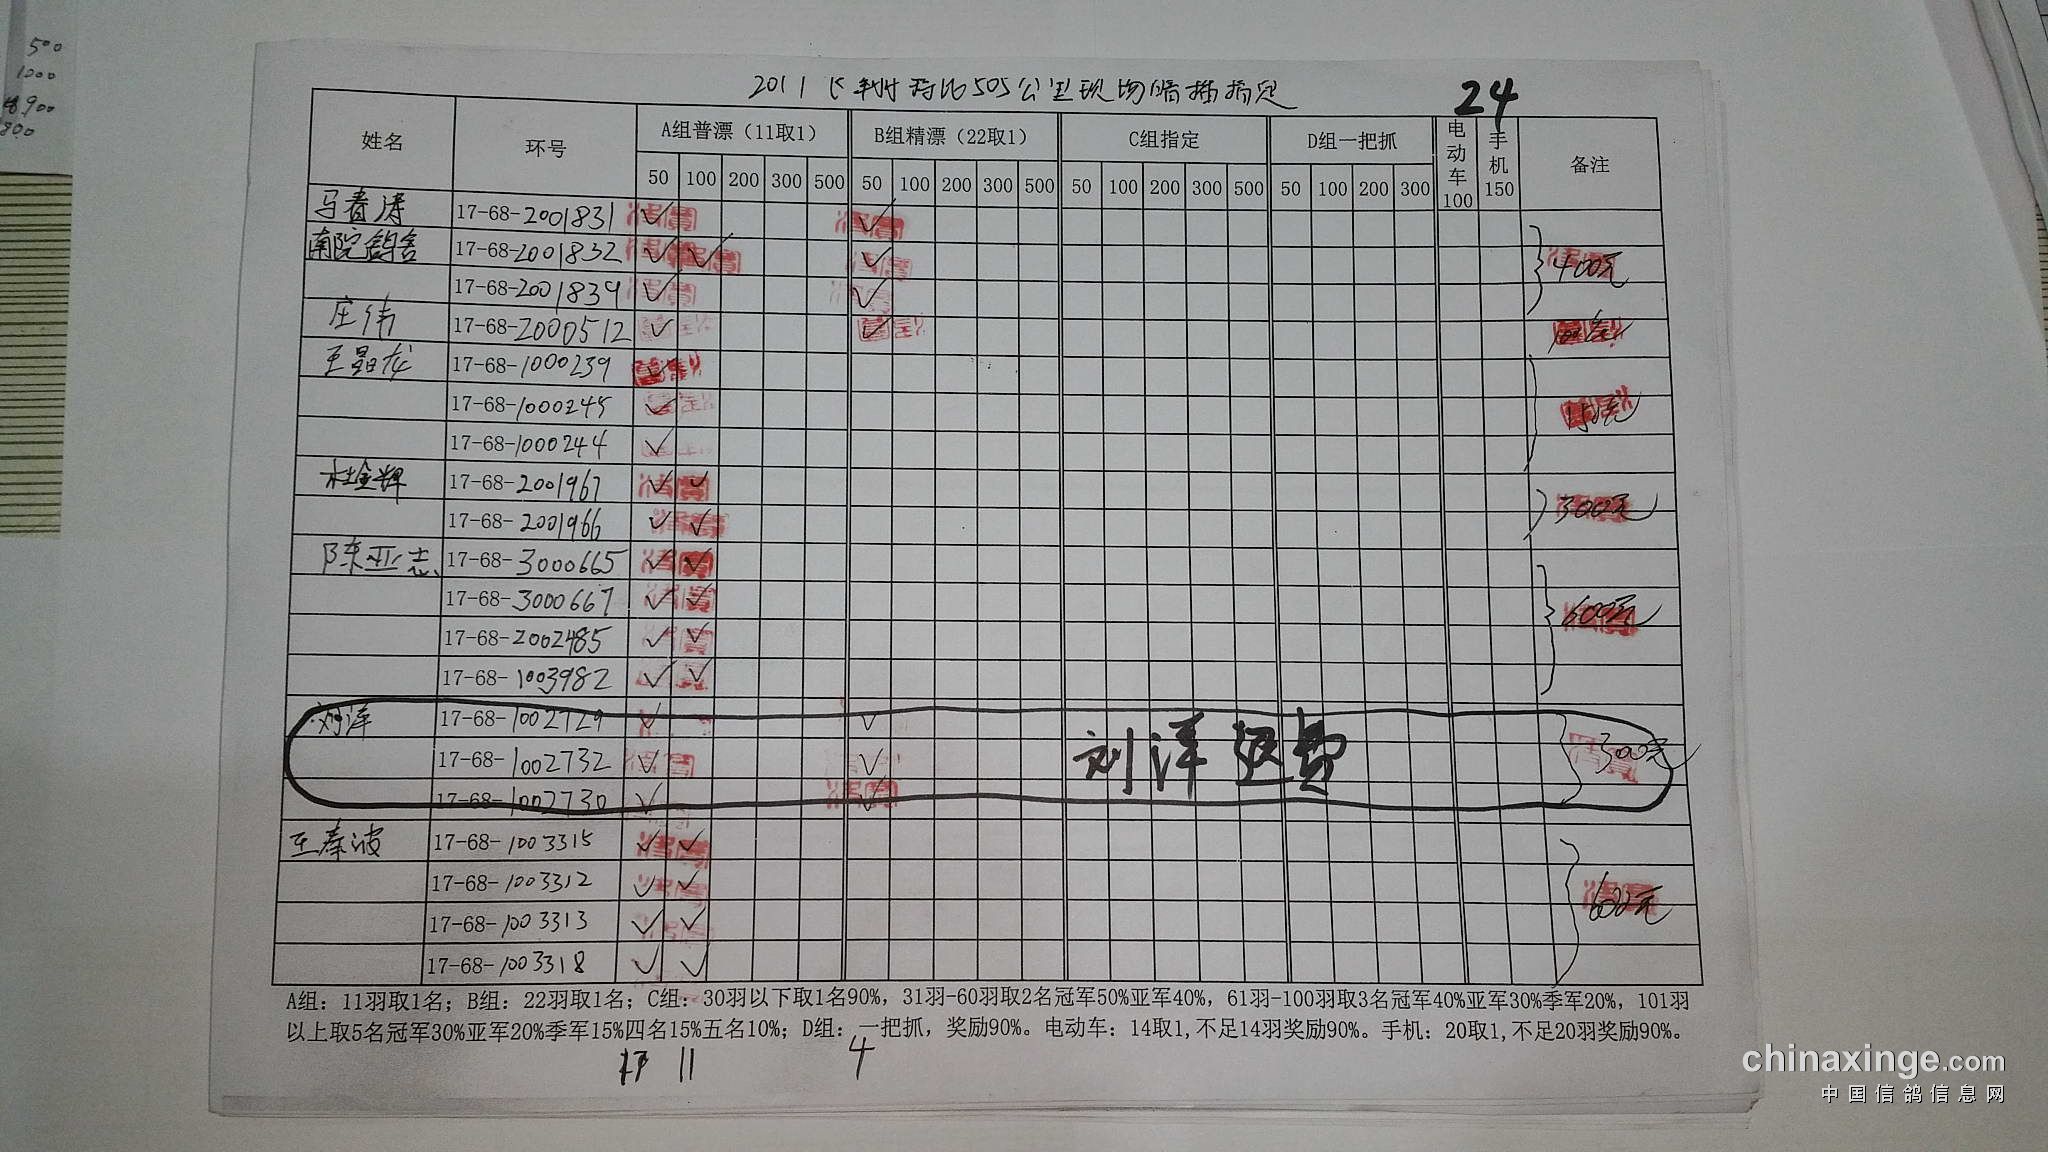 500
1000
900
800
505公里
24
姓名 环号 A组普漂（11取1） B组精漂（22取1） C组指定 D组一把抓 电动车100 手机150 备注
50 100 200 300 500 50 100 200 300 500 50 100 200 300 500 50 100 200 300
马春涛 17-68-2001831 ✓ ✓
南院鸽舍 17-68-2001832 ✓ ✓ ✓ 400元
17-68-2001839 ✓ ✓
庄伟 17-68-2000512 ✓ ✓
王晶龙 17-68-1000239 ✓
17-68-1000245 ✓ 150元
17-68-1000244 ✓
杜金辉 17-68-2001967 ✓ ✓ 300元
17-68-2001966 ✓ ✓
陈亚志 17-68-3000665 ✓ ✓
17-68-3000667 ✓ ✓ 600元
17-68-2002485 ✓ ✓
17-68-1003982 ✓ ✓
刘洋 17-68-1002729 ✓ ✓
17-68-1002732 ✓ ✓ 刘洋 运费 300元
17-68-1002730 ✓ ✓
王春波 17-68-1003315 ✓ ✓
17-68-1003312 ✓ ✓ 600元
17-68-1003313 ✓ ✓
17-68-1003318 ✓ ✓
A组：11羽取1名；B组：22羽取1名；C组：30羽以下取1名90%，31羽-60羽取2名冠军50%亚军40%，61羽-100羽取3名冠军40%亚军30%季军20%，101羽
以上取5名冠军30%亚军20%季军15%四名15%五名10%；D组：一把抓，奖励90%。电动车：14取1,不足14羽奖励90%。手机：20取1,不足20羽奖励90%。
11 4
chinaxinge.com
中国信鸽信息网